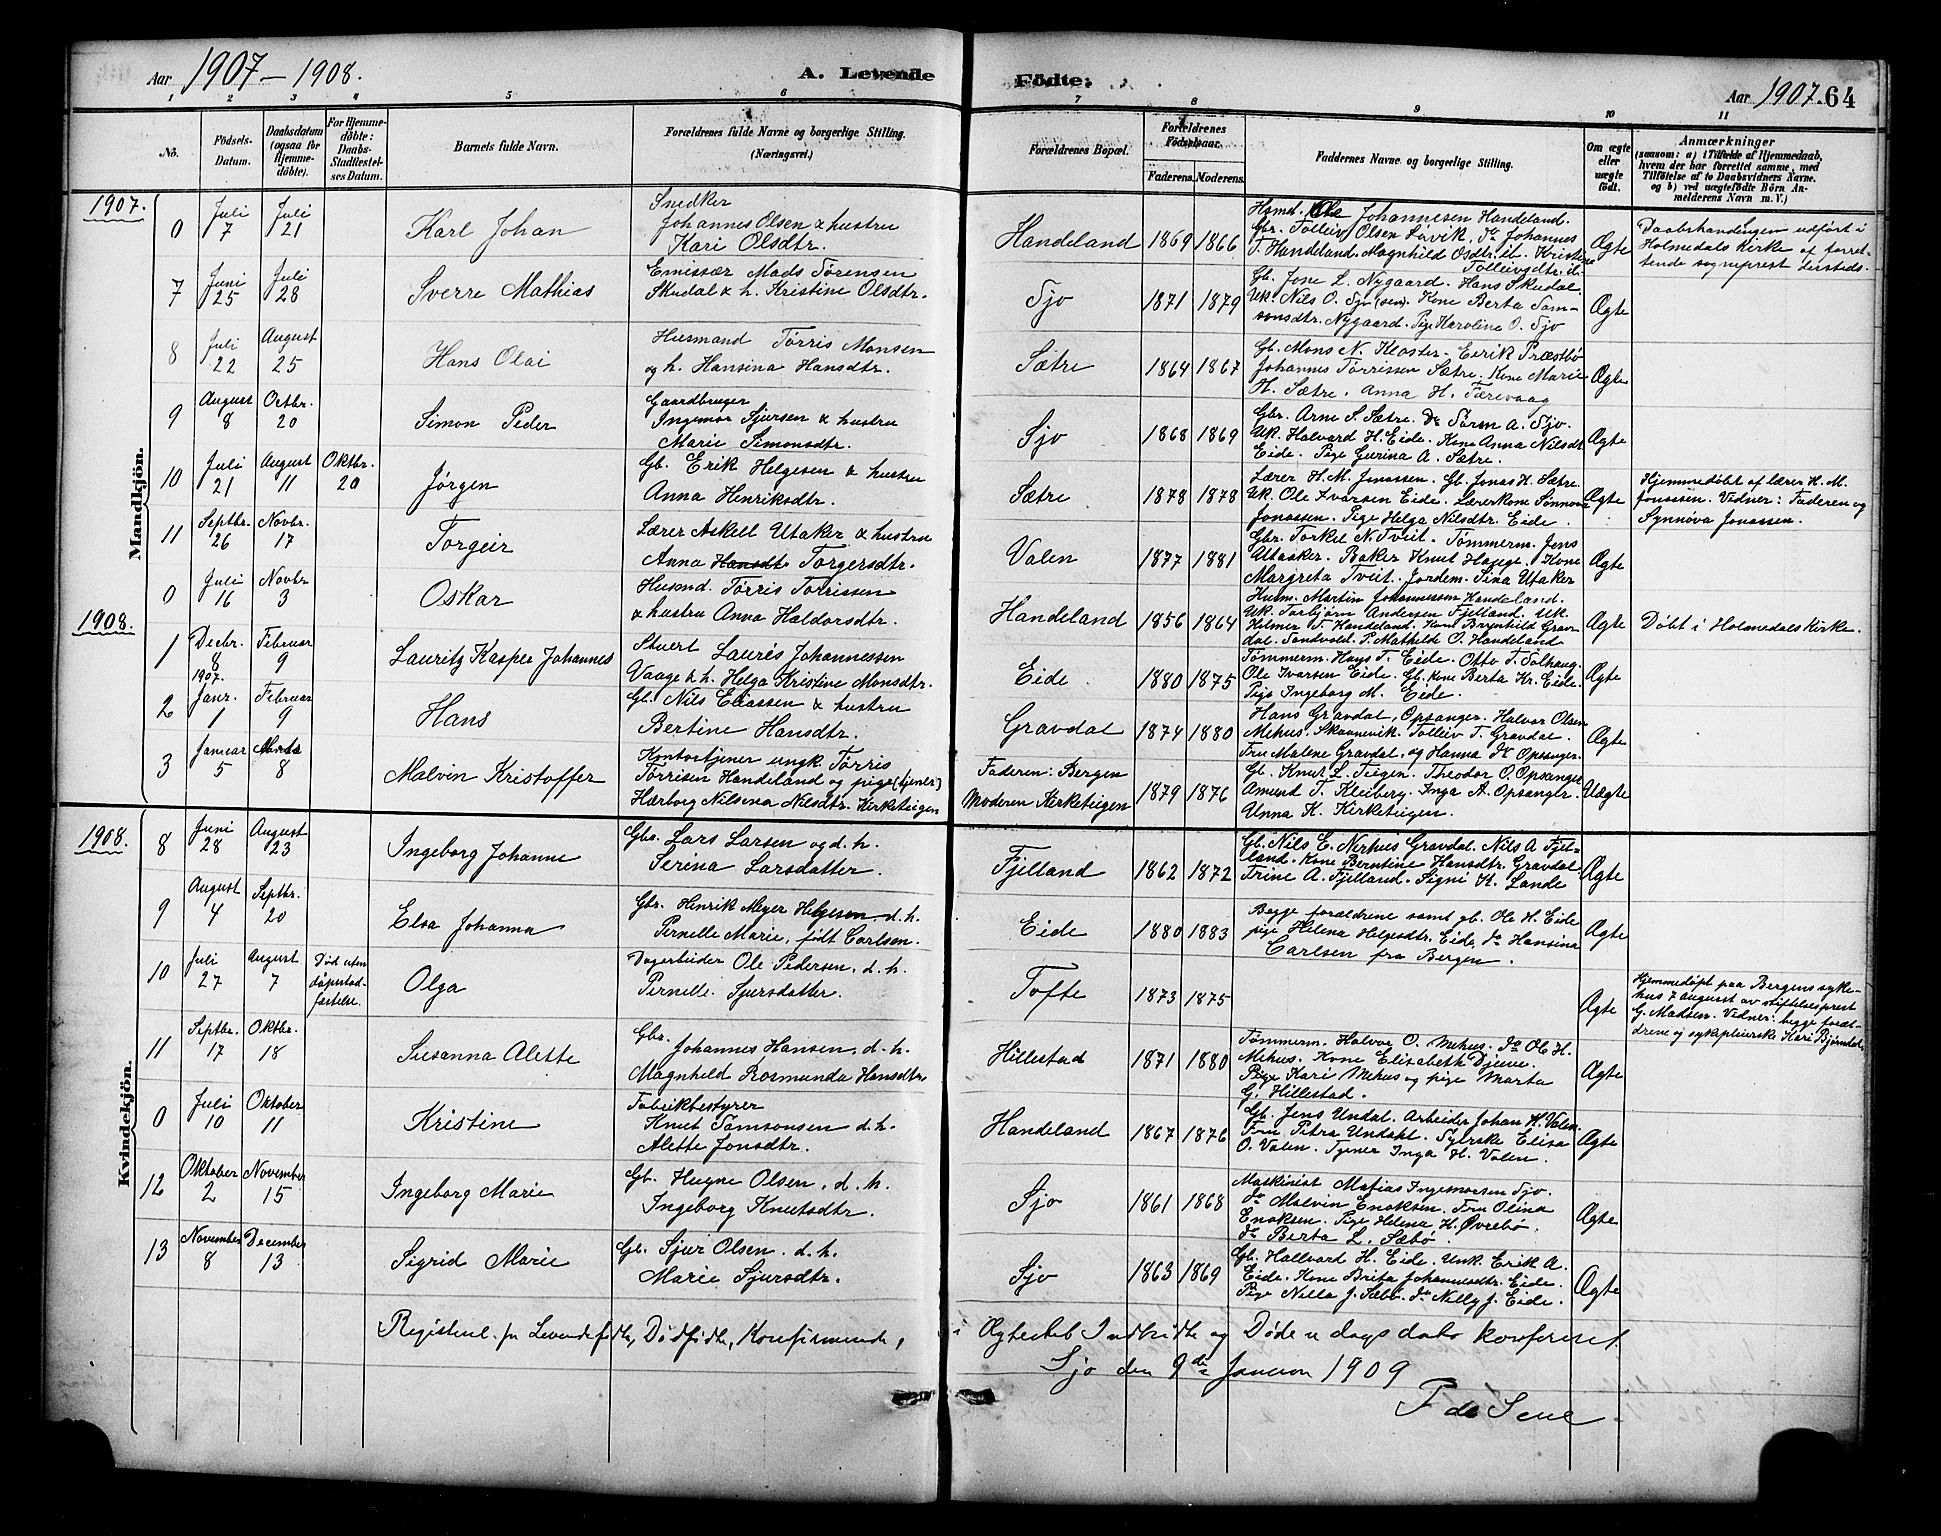 Aar 1907–1908. A. Levende Födte. Aar 1907. 64
1 2 3 4 5 6 7 8 9 10 11
No.
Födsels-Datum.
Daabsdatum (ogsaa for Hjemmedöbte).
For Hjemmedöbte: Daabs-Stadfestelses Datum.
Barnets fulde Navn.
Forældrenes fulde Navne og borgerlige Stilling. (Næringsvei.)
Forældrenes Bopæl.
Forældrenes Födselsaar.
Faderens. Moderens.
Faddernes Navne og borgerlige Stilling.
Om ægte eller uægte födt.
Anmærkninger
(saasom: a) i Tilfælde af Hjemmedaab, hvem der har forrettet samme, med Tilföielse af to Daabsvidners Navne, og b) ved uægtefödte Börn Anmelderens Navn m. V.)
Mandkjön.
1907.
0 Juli 7 Juli 21 Karl Johan
Snedker
Johannes Olsen & hustru
Kari Olsdtr.
Handeland 1869 1866
Hsmd. Ole Johannesen Handeland.
Gbr. Tolleiv Olsen Sævik, do Johannes
T. Handeland. Magnhild Osdtr. ib. Kristine
Tolleivsdtr. ib.
Ægte
Daabshandlingen udført i
Holmedals Kirke af forret-
tende sogneprest dersteds.
7 Juni 25 Juli 28 Sverre Mathias
Emissær Mads Tørensen
Skudal & h. Kristine Olsdtr.
Sjo 1871 1879
Gb. Jone L. Nygaard. Hans Skudal.
Uk. Nils O. Sjo (sen). Kone Berta Sam-
sonsdtr. Nygaard. Pige Karoline O. Sjo
Ægte
8 Juli 22 August 25 Hans Olai
Husmand Tørris Monsen
og h. Hansina Hansdtr.
Sætre 1864 1867
Gb. Mons N. Kloster. Eerik Præstbø
Johannes Tørrissen Sætre. Kone Marie
H. Sætre. Anna H. Færevaag
Ægte
9 August 8 Octbr. 20 Simon Peder
Gaardbruger
Ingemar Sjursen & hustru
Marie Simonsdtr.
Sjo 1868 1869
Gbr. Arne S. Sætre. Do Sørm A. Sjo.
Uk. Halvard H. Eide. Kone Anna Nilsdt
Eide. Pige Gurina A. Sætre.
Ægte
10 Juli 21 August 11 Oktbr. 20 Jørgen
Gb. Erik Helgesen & hustru
Anna Henriksdtr.
Sætre 1878 1878
Lærer H. M. Jonassen. Gb. Jonas H. Sætre.
Uk. Ole Ivarsen Eide. Lærerkone Sønnøva
Jonassen. Pige Helga Nilsdtr. Eide.
Ægte
Hjemmedøbt af lærer H. M.
Jonassen. Vidner: Faderen og
Synnøva Jonassen.
11 Septbr. 26 Novbr. 17 Torgeir
Lærer Askell Utaker & hustru
Anna Hansdt. Torgersdtr.
Valen 1877 1881
Gbr. Torkel N. Tveit. Tømmerm. Jens
Utaaker. Baker Knut Hauge. Kone
Margreta Tveit. Jordem. Sina Utaker
Ægte
0 Juli 16 Novbr 3 Oskar
Husmd. Tørris Torrissen
& hustru Anna Haldorsdtr.
Handeland 1856 1864
Husm. Martin Johannessen Handeland.
Uk. Torbjørn Andersen Fjelland. Uk.
Hilmer T. Handeland. Kone Brynhild Grav-
dal. Sandvold. P. Mathild O. Handeland
Ægte
Døbt i Holmedals Kirke.
1908.
1 Decbr. 8 1907. Februar 9 Lauritz Kasper Johannes
Stuert Laurés Johannessen
Vaage & h. Helga Kristine Monsdtr.
Eide 1880 1875
Tømmerm. Hans T. Eide. Otto T. Solhaug.
Ole Ivarsen Eide. Gb. kone Berta Kr. Eide.
Pige Ingeborg M. Eide.
Ægte
2 Janr. 1 Februar 9 Hans
Gb. Nils Eliassen & hustru
Bertine Hansdtr.
Gravdal 1874 1880
Hans Gravdal, Opsanger. Halvor Olsen
Mehus. Skaanevik. Tolleiv T. Gravdal.
Fru Malene Gravdal, og Hanna K. Opsanger.
Ægte
3 Januar 5 Marts 8 Malvin Kristoffer
Kontortjener ungk. Tørris
Tørrisen Handeland og pige (tjener)
Hærborg Nilsena Nilsdtr. Kirketeigen
Faderen: Bergen
Moderen Kirketeigen
1879 1876
Gb. Knut L. Teigen. Theodor O. Opsanger
Amund T. Kleiberg. Inga A. Opsanger.
Anna K. Kirketeigen.
Uægte
Kvindekjön.
1908.
8 Juni 28 August 23 Ingeborg Johanne
Gbr. Lars Larsen og d. h.
Serina Larsdatter.
Fjelland 1862 1872
Gb. Nils E. Nerhus Gravdal. Nils A. Fjel-
land. Kone Berntine Hansdtr. Gravdal.
Trine A. Fjelland. Signi K. Lande
Ægte
9 August 4 Septbr. 20 Elsa Johanna
Gbr. Henrik Meyer Helgesen d. h.
Pernelle Marie, født Carlsen.
Eide 1880 1883
Begge forældrene samt gb. Ole H. Eide
pige Helena Helgesdtr. Eide, do Hansina
Carlsen fra Bergen.
Ægte
10 Juli 27 August 7 Død uten dåpsstadfæstelse. Olga
Dagarbeider Ole Pedersen, d. h.
Pernille Sjursdatter.
Tofte 1873 1875
Ægte
Hjemmedøpt paa Bergens syke-
hus 7 august av stiftelsesprest
G. Madsen. Vidner: begge foræl-
drene og sykepleierske Kari Bjørndal.
11 Septbr. 17 Oktbr. 18 Susanna Alette
Gbr. Johannes Hansen, d. h.
Magnhild Rosmunda Hansdtr.
Hillestad 1871 1880
Tømmerm. Halvor O. Mehus. Do Ole H.
Mehus. Kone Elisabeth Djuve.
Pige Kari Mehus og pige Marta
G. Hillestad.
Ægte
0 Juli 10 Oktober 11 Kristine
Fabrikbestyrer
Knut Samsonsen d. h.
Alette Jonsdtr.
Handeland 1867 1876
Gb. Jens Undal. Arbeider Johan H. Valen.
Fru Petra Undahl. Syerske Elisa
O. Valen. Tjener Inga H. Valen.
Ægte
12 Oktober 2 November 15 Ingeborg Marie
Gb. Hugne Olsen, d. h.
Ingeborg Knutsdtr.
Sjo 1861 1868
Maskinist Matias Ingemarsen Sjo.
do Malvin Enoksen. Fru Olina
Enoksen. Pige Helena H. Øvrebø.
do Berta L. Sæbø.
Ægte
13 November 8 December 13 Sigrid Marie
Gb. Sjur Olsen. d. h.
Marie Sjursdtr.
Sjo 1863 1869
Gb. Hallvard H. Eide. Unk. Erik A.
Eide. Kone Brita Johannesdtr. Eide.
Pige Nilla J. Sæbø. do Nilly J. Eide.
Ægte
Registrene for Levendefødte, Dødfødte, Konfirmerede,
i Ægteskab Indtrædte og Døde er dags dato konfereret.
Sjo den 9de Januar 1909